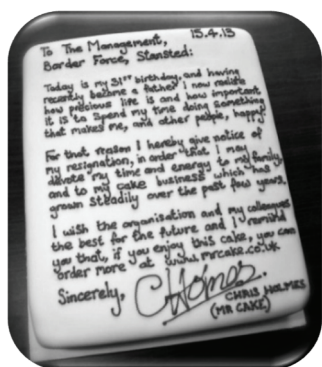 15.4.13
To The Management,
Border Force, Stansted:
Today is my 31st birthday, and having
recently become a father I now realise
how precious life is and how important
it is to spend my time doing something
that makes me, and other people, happy.
For that reason I hereby give notice of
my resignation, in order that I may
devote my time and energy to my family,
and to my cake business which has
grown steadily over the past few years.
I wish the organisation and my colleagues
the best for the future and I remind
you that, if you enjoy this cake, you can
order more at www.mrcake.co.uk.
Sincerely, CHolmes.
CHRIS HOLMES
(MR CAKE)